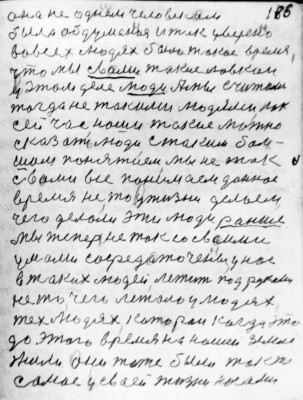 186
она не однем человекам
была обдумана и так уверено
во всех людях было такое время
что мы свами такие ловкаи
у этом деле люди Аты считали
тогда не такими людями как
сей час наши такие можно
сказать люди с таким бол-
шим понятием мы не так
свами все понимаем данное
время не то у жизни делаем
чего делали эти люди раньше
мы теперь не так со своими
умами сосредоточены у нас
в таких людей летит под руками
не то чего летало у людях
тех людях каторои когда это
до этого время на нашей земле
жили они тоже были такие
самое у своей жизни